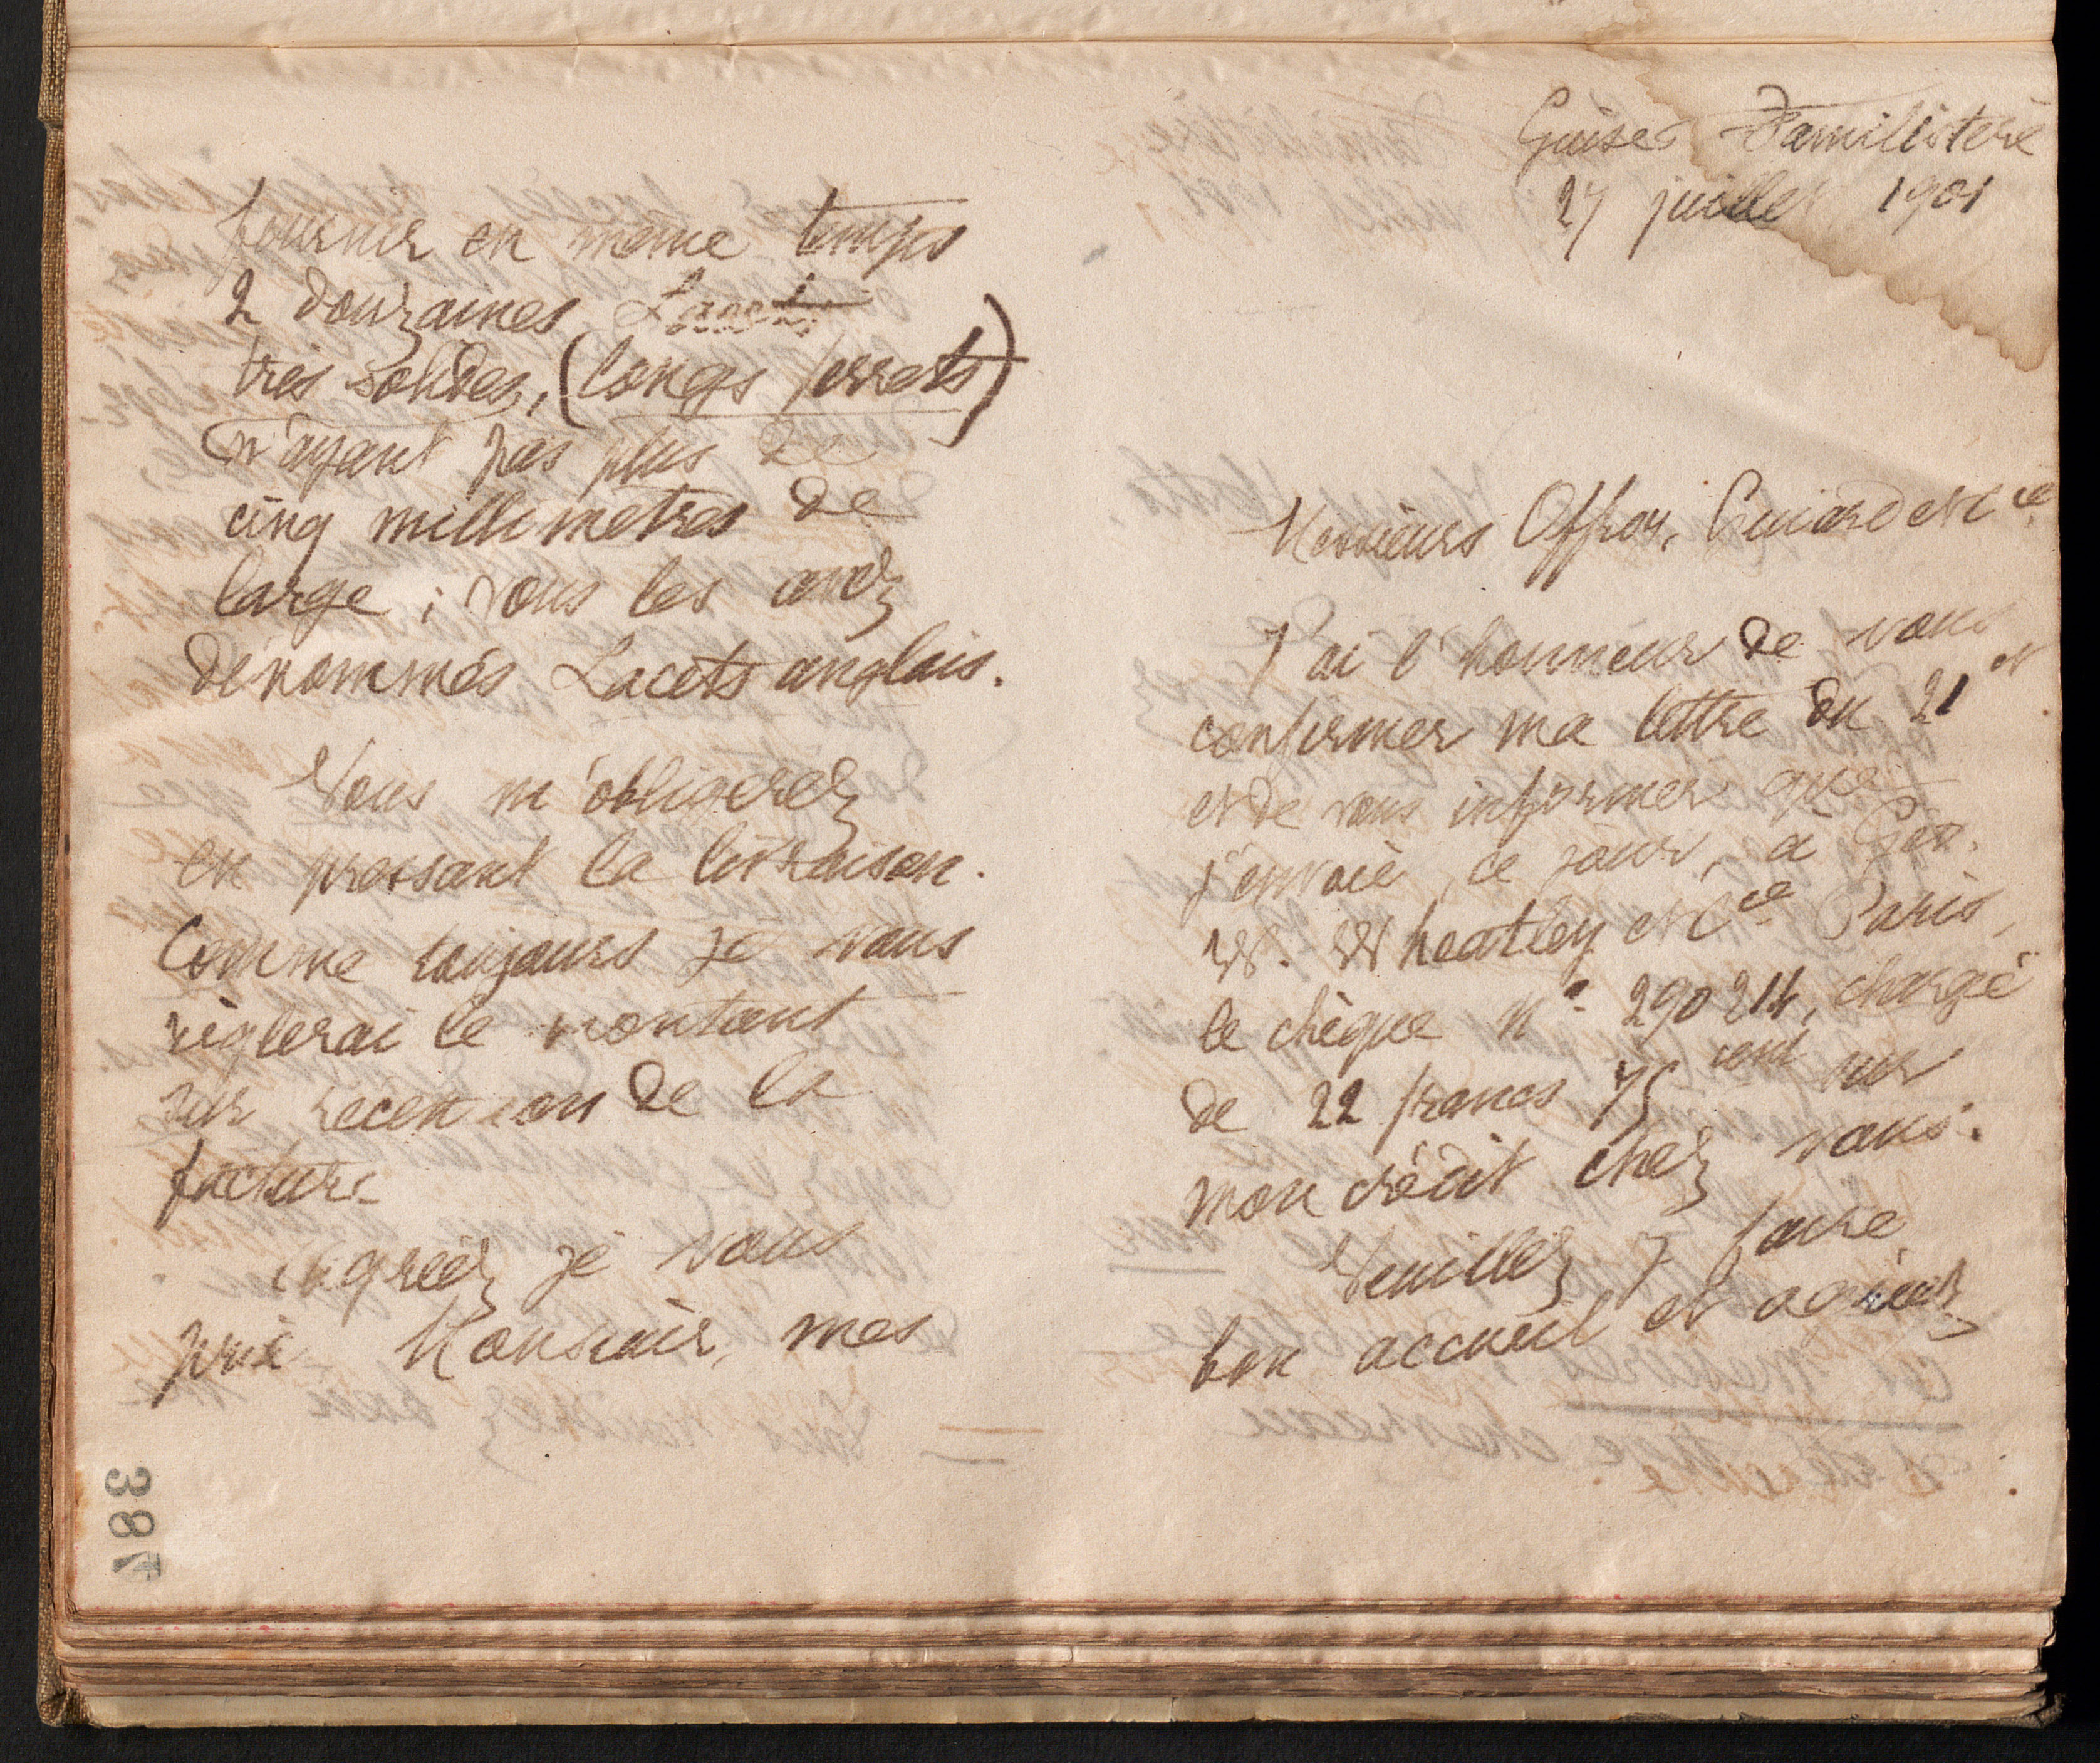 fournir en même temps
2 douzaines Lacets
très solides, (longs ferrets)
n'ayant pas plus de
cinq millimètres de
large ; vous les avez
dénommés Lacets anglais.
Vous m'obligerez
en pressant la livraison.
Comme toujours je vous
règlerai le montant
sur réception de la
facture
Agréez je vous
prie Monsieur, mes
387
Guise Familistère
27 juillet 1901
Messieurs Offroy, Guiard et Cie
J'ai l'honneur de vous
confirmer ma lettre du 21 ct
et de vous informer que
j'envoie, ce jour, à Geo.
W. Wheatley et Cie Paris,
le chèque No 290214, chargé
de 22 francs 75 cent sur
mon crédit chez vous.
Veuillez y faire
bon accueil et agréer